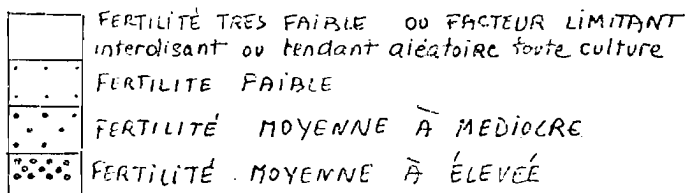 FERTILITÉ TRES FAIBLE OU FACTEUR LIMITANT
interdisant ou tendant aléatoire toute culture
FERTILITE FAIBLE
FERTILITÉ MOYENNE À MEDIOCRE
FERTILITÉ MOYENNE À ÉLEVEÉ